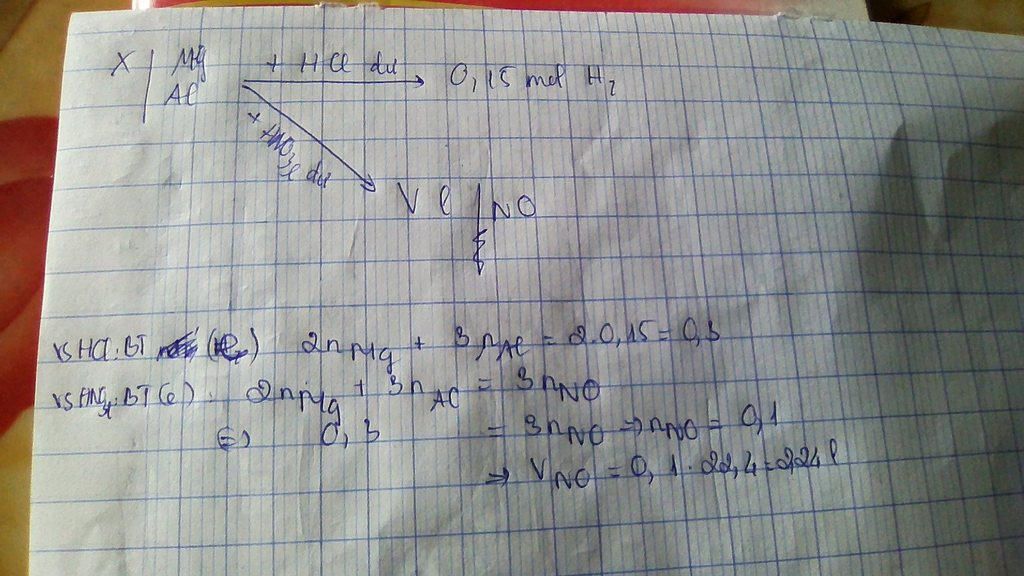 X | Mg + HCl dư → 0,15 mol H2
Al
+ HNO3 dư
V l | NO
vs HCl: BT (e) 2nMg + 3nAl = 2.0,15 = 0,3
vs HNO3: BT (e): 2nMg + 3nAl = 3nNO
⇔ 0,3 = 3nNO → nNO = 0,1
→ VNO = 0,1.22,4 = 2,24 l